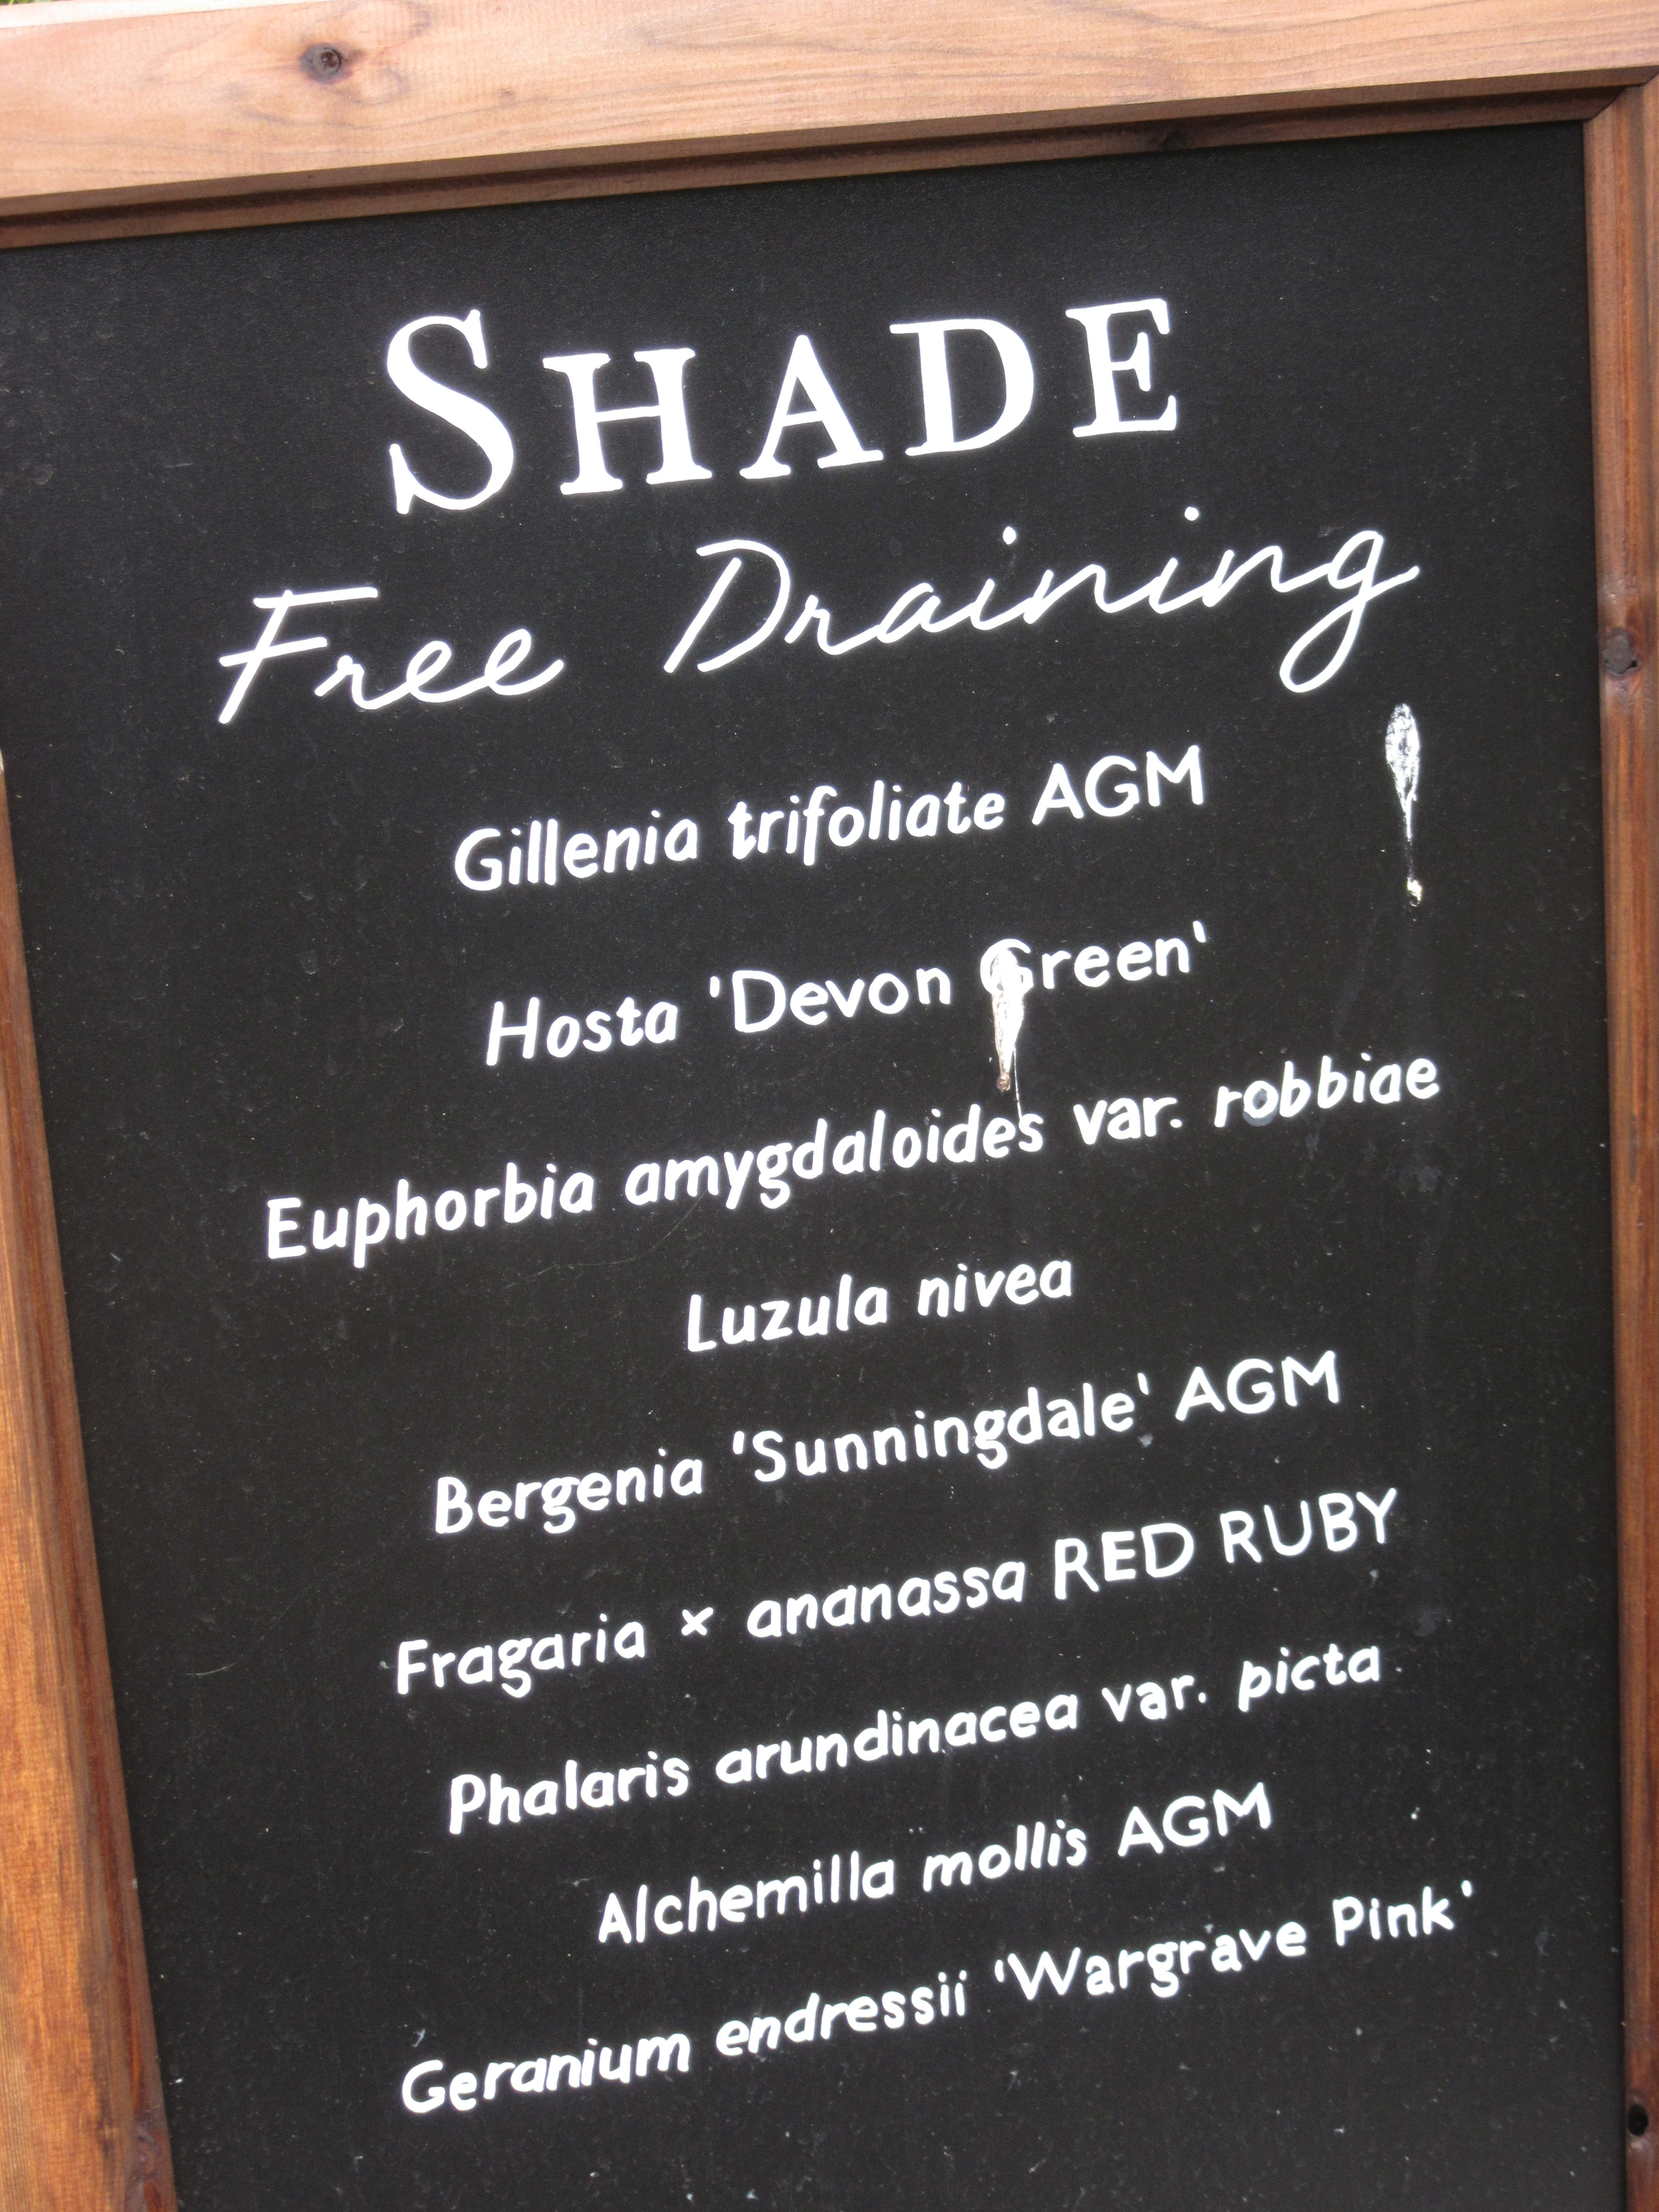 SHADE
Free Draining
Gillenia trifoliate AGM
Hosta 'Devon Green'
Euphorbia amygdaloides var. robbiae
Luzula nivea
Bergenia 'Sunningdale' AGM
Fragaria × ananassa RED RUBY
Phalaris arundinacea var. picta
Alchemilla mollis AGM
Geranium endressii 'Wargrave Pink'